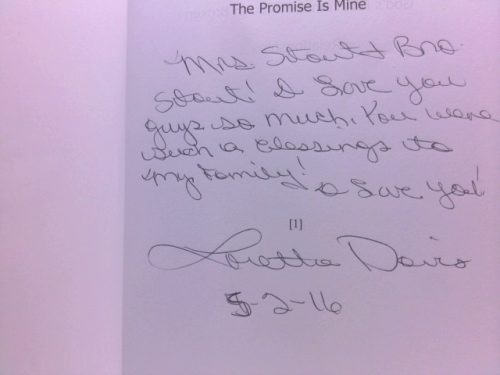 The Promise Is Mine
Mrs Stout & Bro.
Stout! I Love you
guys so much. You were
such a blessings to
my family!
I Love you!
[1]
Loretta Davis
5-2-16